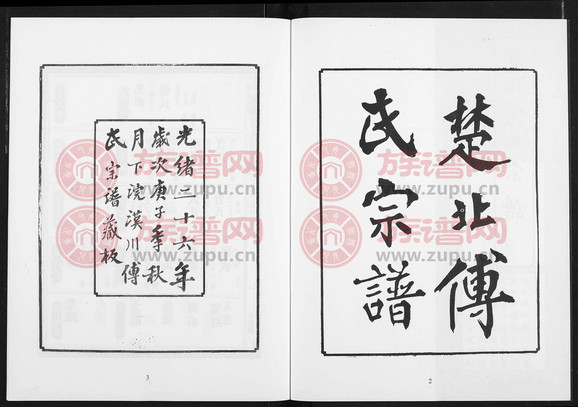 楚北傅
氏宗譜
2
光緒二十六年
歲次庚子季秋
月下浣漢川傅
氏宗譜藏板
3
族谱网
www.zupu.cn
族谱网
www.zupu.cn
族谱网
www.zupu.cn
族谱网
www.zupu.cn